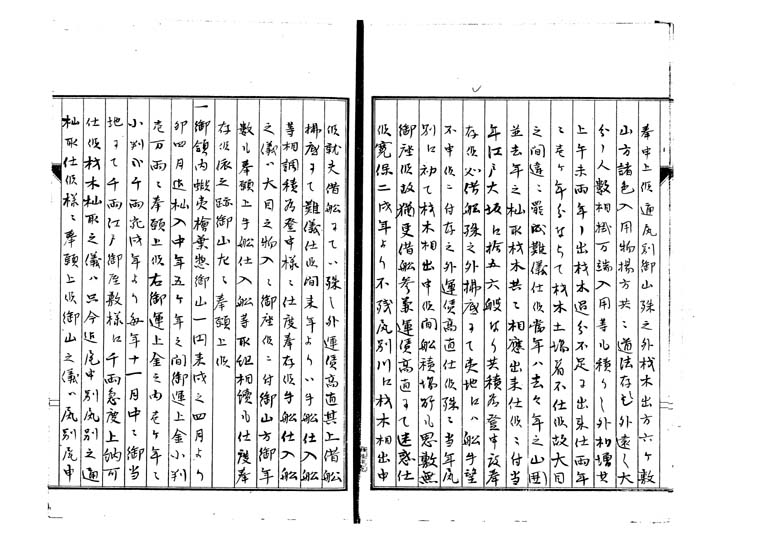 奉申上候通尻別御山殊之外材木出方六ヶ敷
山方諸色入用物揚方共ニ道法存之外遠く大
分ノ人数相掛万端入用等も積りゟ外相増其
上午未両年ノ出材木過分不足ニ出来仕両年
ニも壱ヶ年分なくて材木土場着不仕候故大目
之間違ニ罷成難儀仕候当年ハ去々年之山囲
並去年之杣取材木共ニ相應出来仕候ニ付当
年江戸大坂ニ拾五六艘もり其積為登申設奉
存候処借船殊之外拂底ニて夷地江ハ船手望
不申候ニ付存之外運賃高直仕候殊ニ当年尻
別ニ初て材木相出申候間船積場所も思敷無
御座候故猶更借船参兼運賃高直ニて迷惑仕
候寛保二戌年ゟ不残尻別川江材木相出申
候就夫借船ニてハ殊之外運賃高直其上借船
拂底ニて難儀仕候間来年ゟハ手船仕入船
等相調積為登申様ニ仕度奉存候手船仕入船
之儀ハ大目之物入ニ御座候ニ付御山方御年
数も奉願上手船仕入船等取組相續も仕度奉
存候依之跡御山左ニ奉願上候
一御領内蝦夷檜葉惣御山一円来戌之四月ゟ
卯四月迄杣入中年五ヶ年之間御運上金小判
壱万両ニ奉願上候右御運上金之内壱ヶ年ニ
小判弐千両宛戌年ゟ毎年十一月中ニ御当
地ニて千両江戸御屋敷様江千両急度上納可
仕候材木杣取之儀ハ只今迄尻申別尻別之通
杣取仕候様ニ奉願上候御山之儀ハ尻別尻申